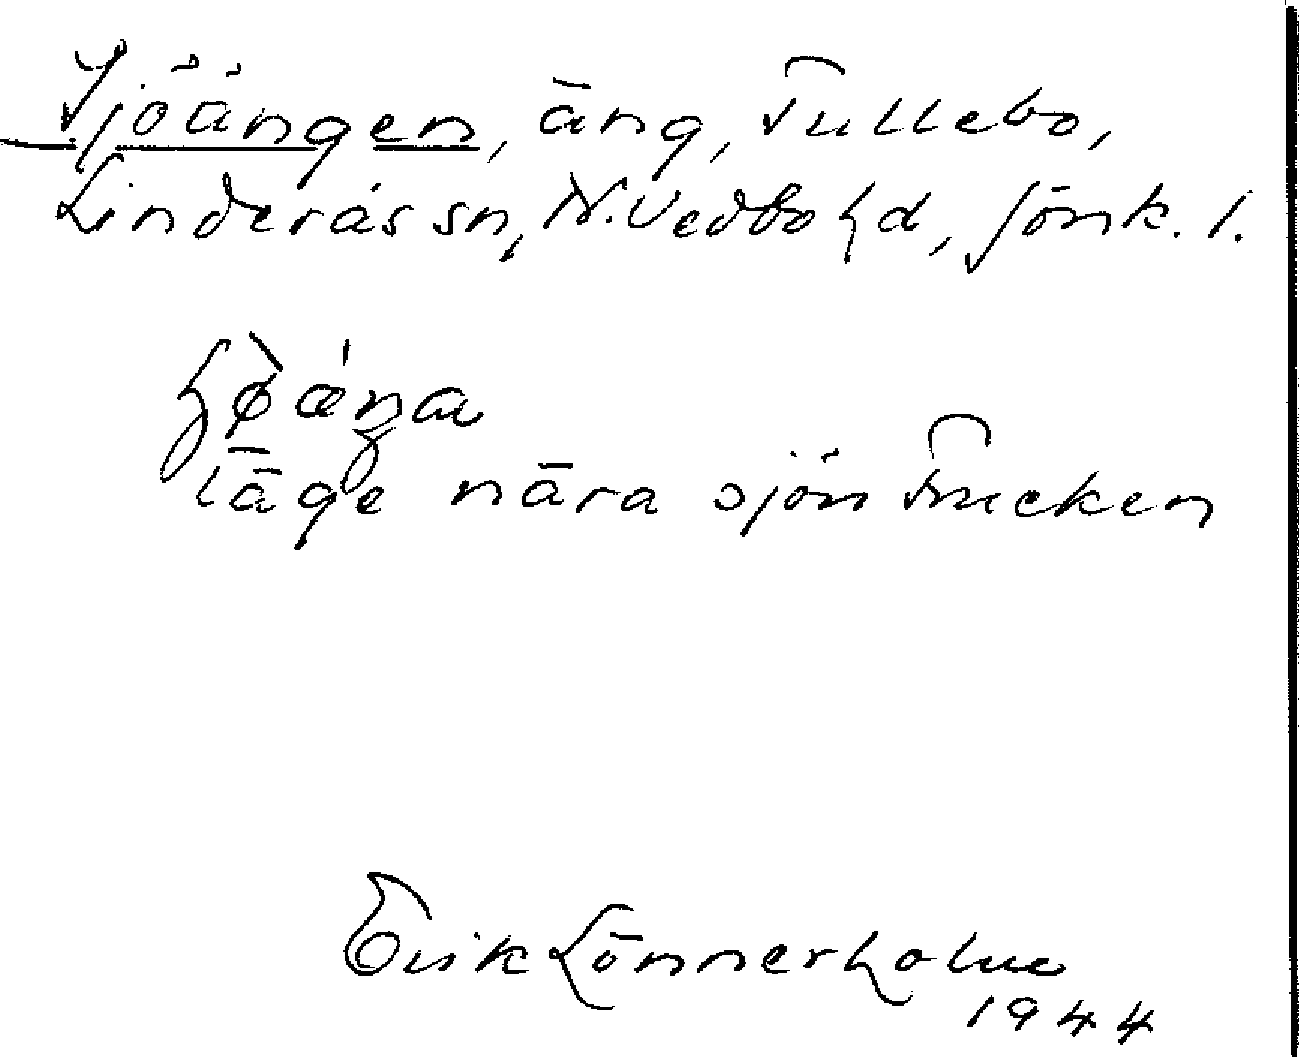 Sjöängen, äng, Tullebo,
Linderås sn, N. Vedbo hd, Jönk. l.
läge nära sjön Trucken
Erik Lönnerholm
1944